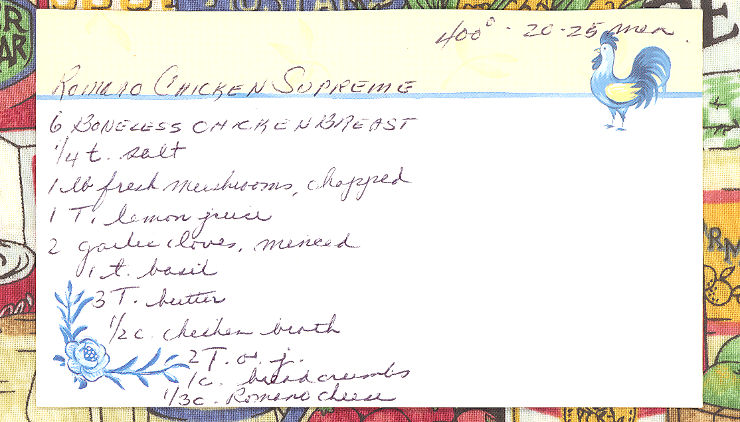 400° - 20-25 min.
ROMANO CHICKEN SUPREME
6 BONELESS CHICKEN BREAST
1/4 t. salt
1 lb fresh mushrooms, chopped
1 T. lemon juice
2 garlic cloves, minced
1 t. basil
3 T. butter
1/2 c. chicken broth
2 T. o. j.
1 c. bread crumbs
1/3 c. Romano cheese